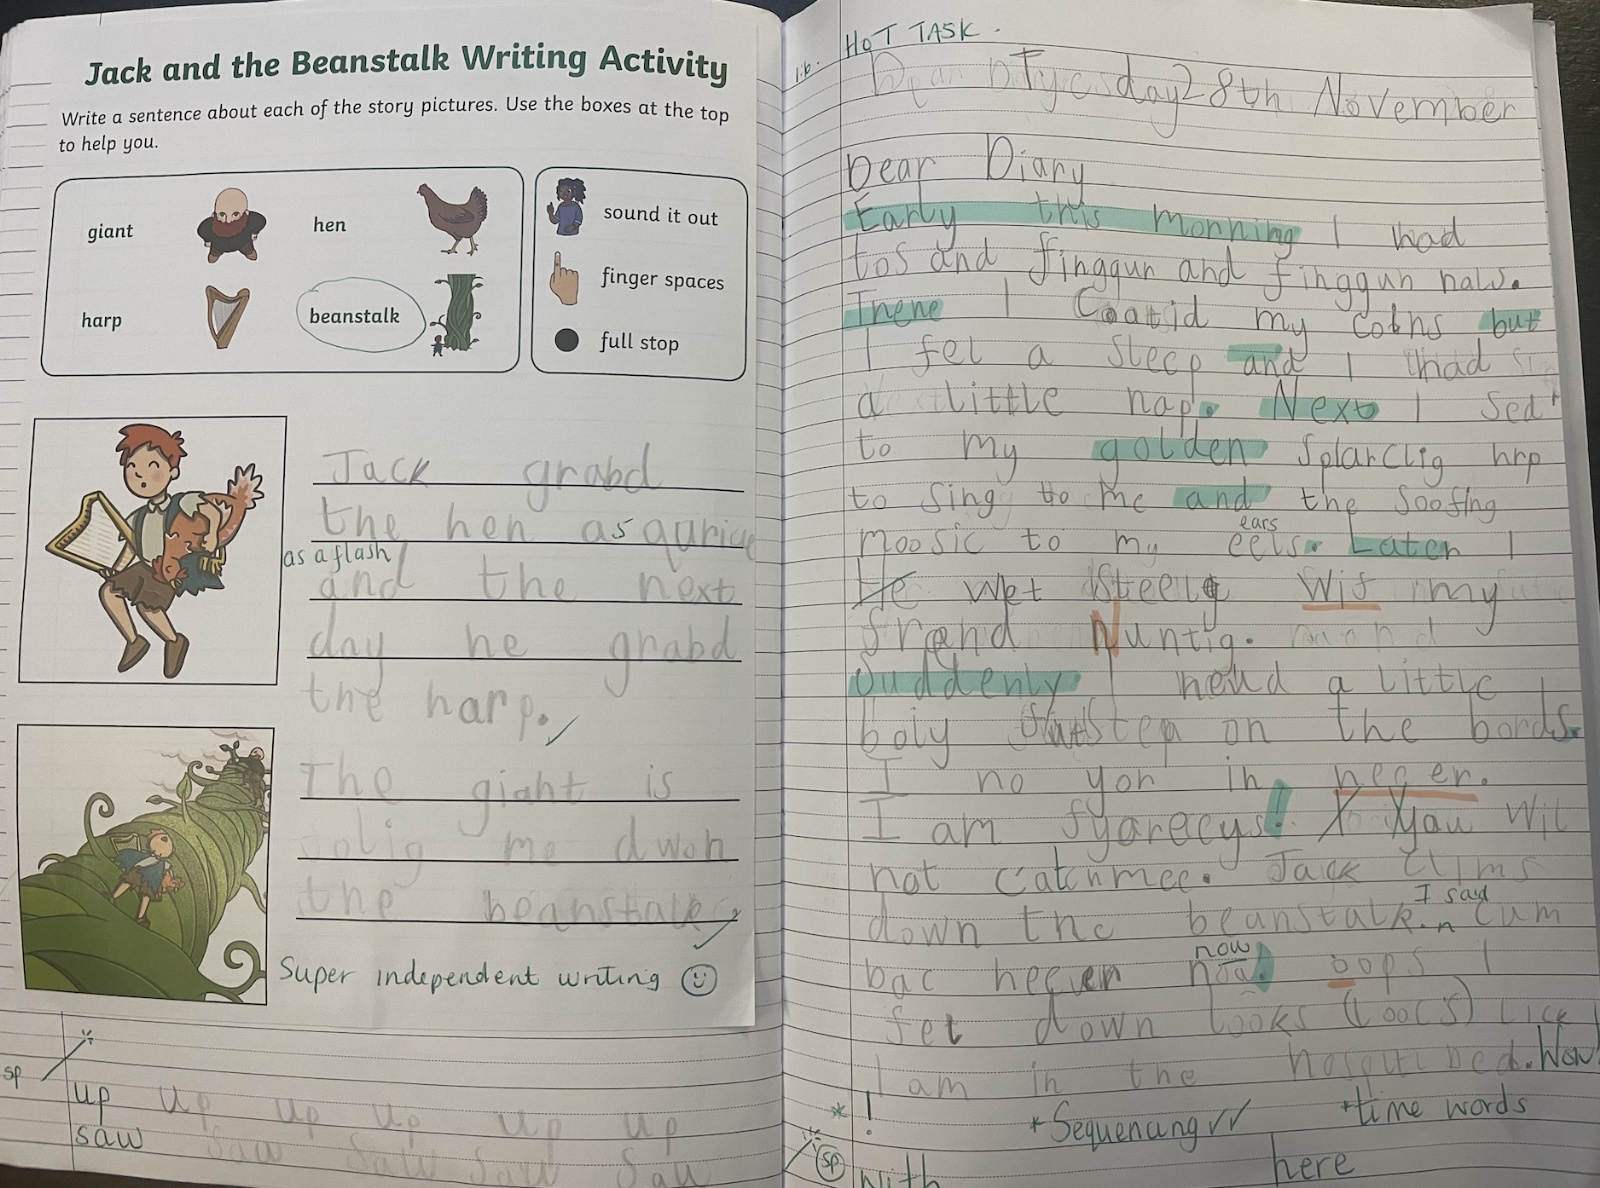 Jack and the Beanstalk Writing Activity
Write a sentence about each of the story pictures. Use the boxes at the top
to help you.
giant
hen
harp
beanstalk
sound it out
finger spaces
full stop
Jack grabd
the hen as
as a flash
and the next
day he grabd
the harp.
The giant is
me dwon
the beanstalk
Super independent writing
sp
up up up up up up
saw saw saw saw saw
HOT TASK.
Tuesday 28th November
Dear Diary
Early this morning I had
tos and finggun and finggun nals.
Thene I Coatid my coins but
I fel a sleep and I had
a little nap. Next I Sed
to my golden Splarclig hrp
to sing to me and the Soofing
ears
moosic to my eels. Later I
wet Steelg wif my
frend Nuntig.
Suddenly I heud a little
boiy step on the bords.
I no yor in heger.
I am fyareeys! You wil
not catchmee. Jack clims
I said
down the beanstalk. Cum
now
bac heger oops I
fel down looks (Loocs) Lick
I am in the bed. Wow!
* ! * Sequencing ✓✓ * time words
sp with here